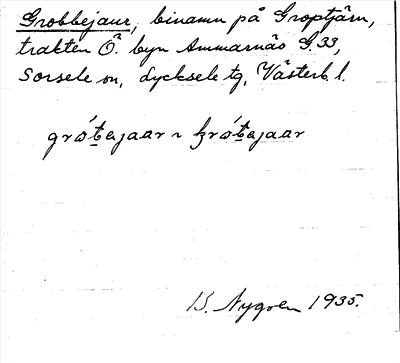 Grobbejaur, binamn på Groptjärn,
trakten Ö. byn Ammarnäs G.33,
Sorsele sn, Lycksele tg, Västerb. l.
B. Nygren 1935.